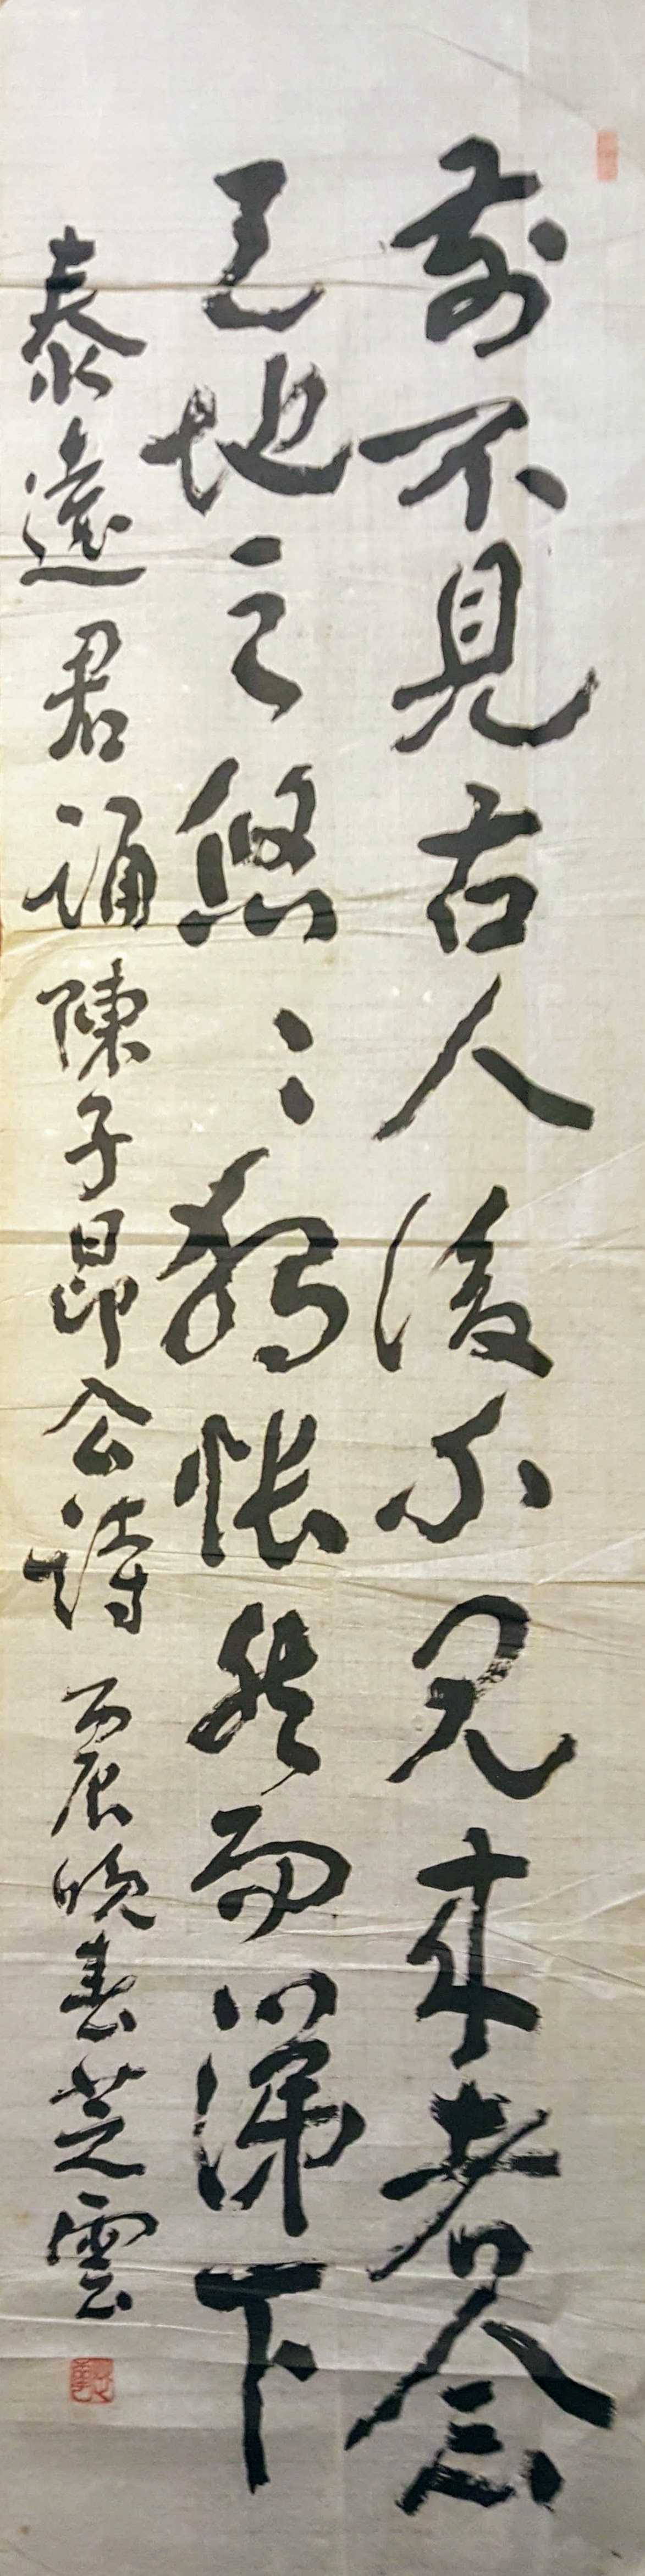 前不見古人後不見來者念
天地之悠々獨悵然而涕下
泰遠君誦陳子昂公詩 丙辰晚春芝雲